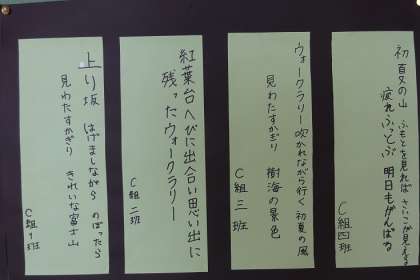 初夏の山 ふもとを見れば さいこが見える
疲れふっとぶ 明日もがんばる
C組四班
ウォークラリー 吹かれながら行く 初夏の風
見わたすかぎり 樹海の景色
C組三班
紅葉台 へびに出合い 思い出に
残ったウォークラリー
C組二班
上り坂 はげましながら のぼったら
見わたすかぎり きれいな富士山
C組1班